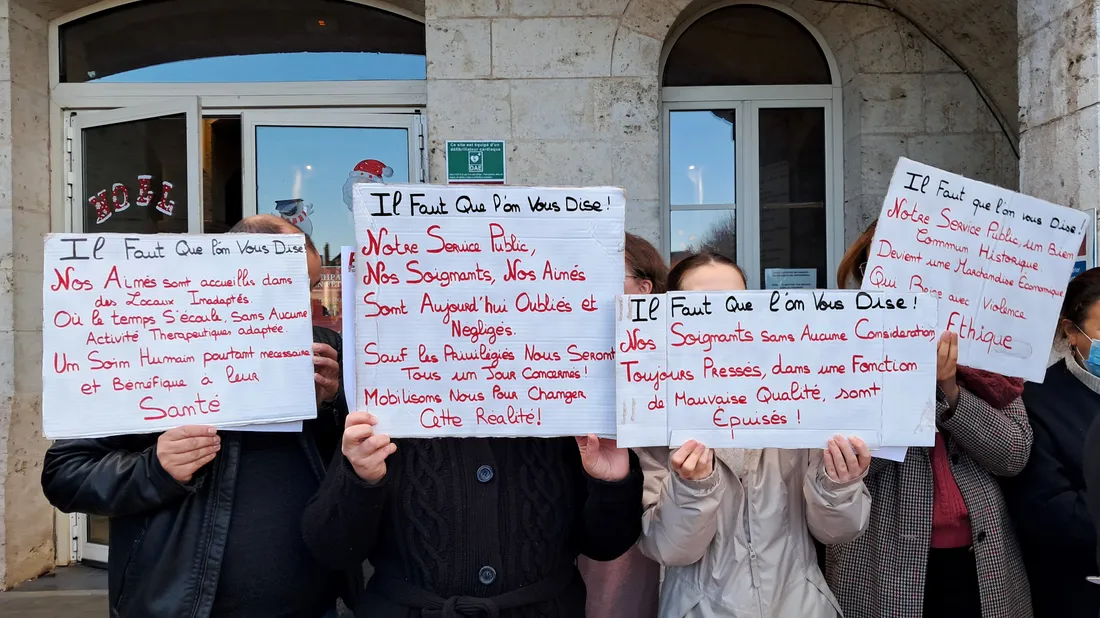 NOEL
Ce site est équipé d'un
défibrillateur cardiaque
DAE
Il Faut Que l'on Vous Dise!
Nos Aimés sont accueillis dans
des Locaux Inadaptés.
Où le temps S'écoule, Sans Aucune
Activité Therapeutiques adaptée.
Un Soin Humain pourtant necessaire
et Bénéfique à leur
Santé
Il Faut Que l'on Vous Dise!
Notre Service Public,
Nos Soignants, Nos Aimés
Sont Aujourd'hui Oubliés et
Negligés.
Sauf les Privilégiés Nous Seront
Tous un Jour Concernés!
Mobilisons Nous Pour Changer
Cette Réalité!
Il Faut Que l'on Vous Dise!
Nos Soignants sans Aucune Consideration,
Toujours Pressés, dans une Fonction
de Mauvaise Qualité, sont
Epuisés!
Il Faut que l'on Vous Dise!
Notre Service Public, un Bien
Commun Historique
Devient une Marchandise Economique
Qui avec Violence
Ethique